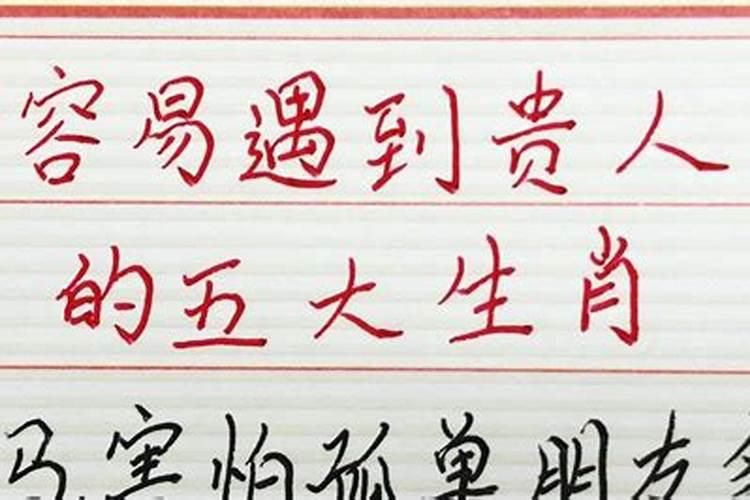 容易遇到贵人
的五大生肖
马害怕孤单朋友